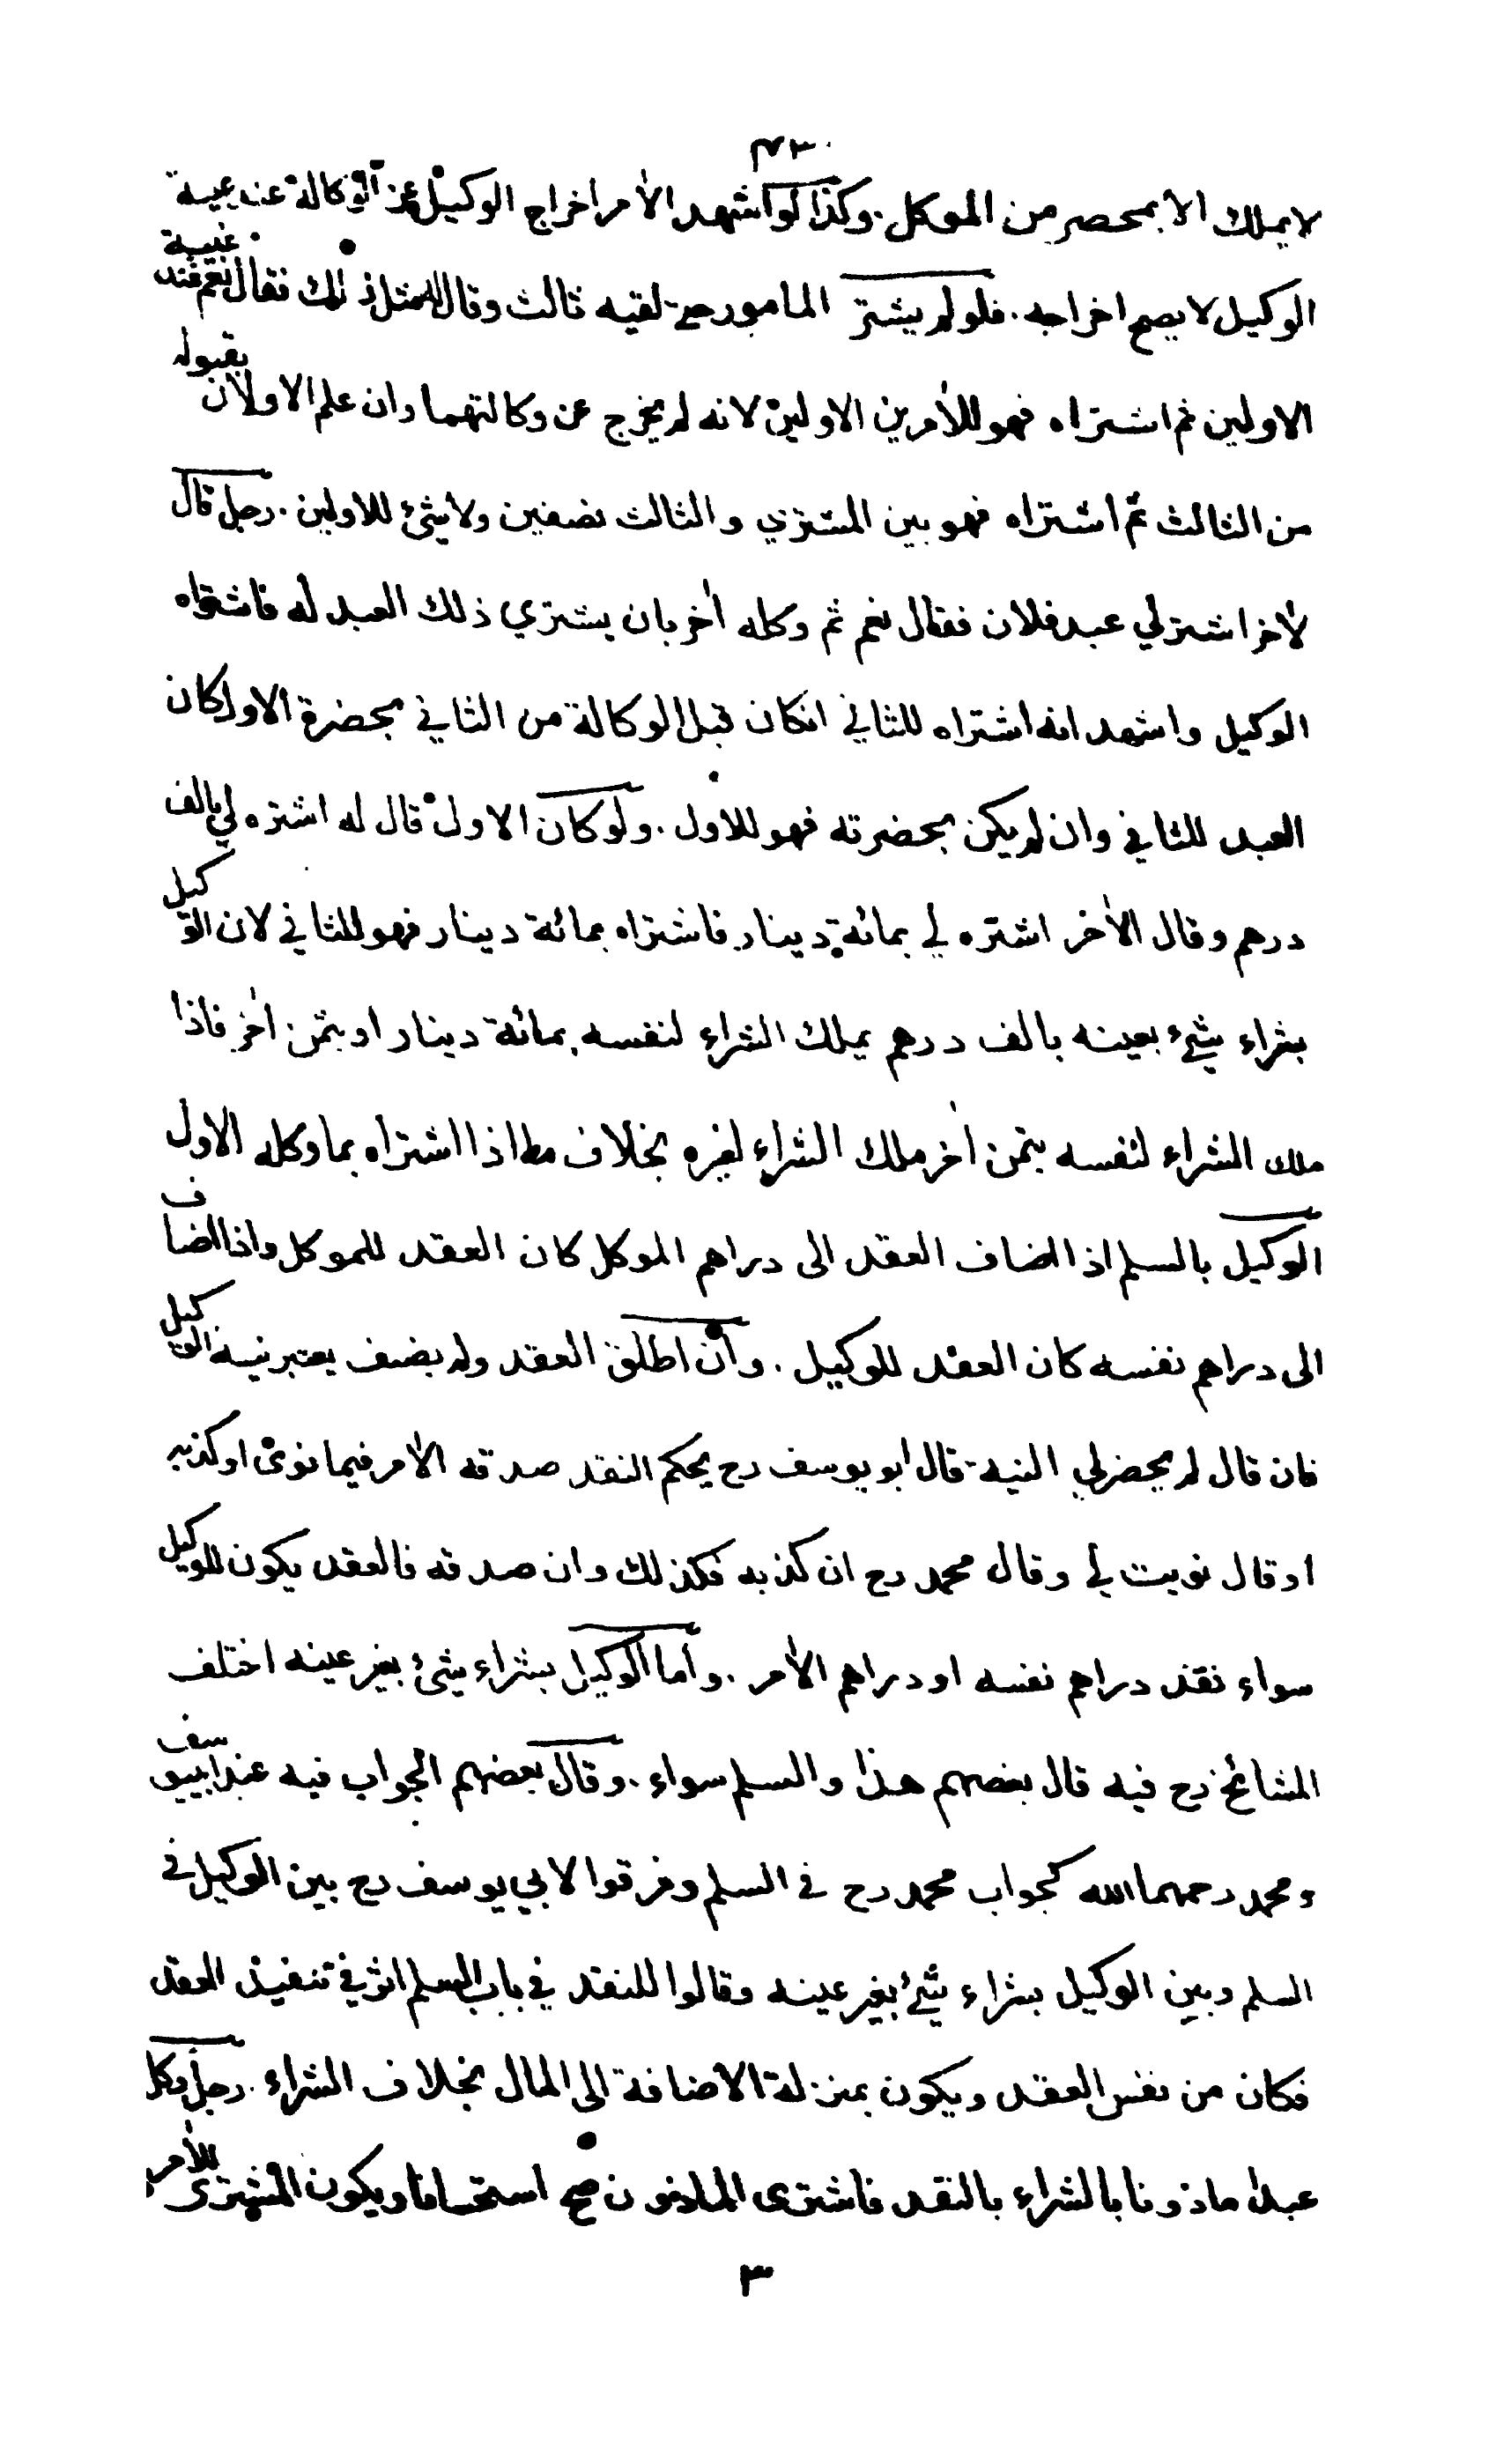 ٣٠٣
لا يملك الا بمحضر من الموكل . وكذا لو اشهد الأمر اخراج الوكيل عن الوكالة عند غيبة
الوكيل لا يصح اخراجه . فلو لم يشتر المامور حتى لقيه ثالث وقال له مثل ذلك فقال نعم عند غيبة
الاولين ثم اشتراه فهو للأمرين الاولين لانه لم يخرج عن وكالتهما وان علم الاولان بقبوله
من الثالث ثم اشتراه فهو بين المشتري والثالث نصفين ولا شئ للاولين . رجل قال
لأخر اشتر لي عبد فلان فقال نعم ثم وكله أخر بان يشتري ذلك العبد له فاشتراه
الوكيل واشهد انه اشتراه للثاني انكان قبل الوكالة من الثاني بحضرة الاول كان
العبد للثاني وان لم يكن بحضرته فهو للاول . ولو كان الاول قال له اشتره لي بالف
درهم وقال الأخر اشتره لي بمائة دينار فاشتراه بمائة دينار فهو للثاني لان الوكيل
بشراء شئ بعينه بالف درهم يملك الشراء لنفسه بمائة دينار او بثمن أخر فاذا
ملك الشراء لنفسه بثمن أخر ملك الشراء لغيره بخلاف ما اذا اشتراه بما وكله الاول
الوكيل بالسلم اذا اضاف العقد الى دراهم الموكل كان العقد للموكل واذا اضاف
الى دراهم نفسه كان العقد للوكيل . وان اطلق العقد ولم يضف يعتبر نية الوكيل
فان قال لم يحضرلي النية قال ابو يوسف رح يحكم النقد صدقه الأمر فيما نوى او كذبه
او قال نويت لي وقال محمد رح ان كذبه فكذلك وان صدقه فالعقد يكون للوكيل
سواء نقد دراهم نفسه او دراهم الأمر . واما الوكيل بشراء شئ بغير عينه اختلف
المشائخ رح فيه قال بعضهم هذا والسلم سواء . وقال بعضهم الجواب فيه عند ابي يوسف
ومحمد رحمهما الله كجواب محمد رح في السلم وفرقوا لابي يوسف رح بين الوكيل في
السلم وبين الوكيل بشراء شئ بغير عينه وقالوا للنقد في باب السلم اثر في تنفيذ العقد
فكان من نفس العقد ويكون بمنزلة الاضافة الى المال بخلاف الشراء . رجل وكل
عبدا ماذونا بالشراء بالنقد فاشترى الماذون صح استحسانا ويكون المشترى للأمر
٣